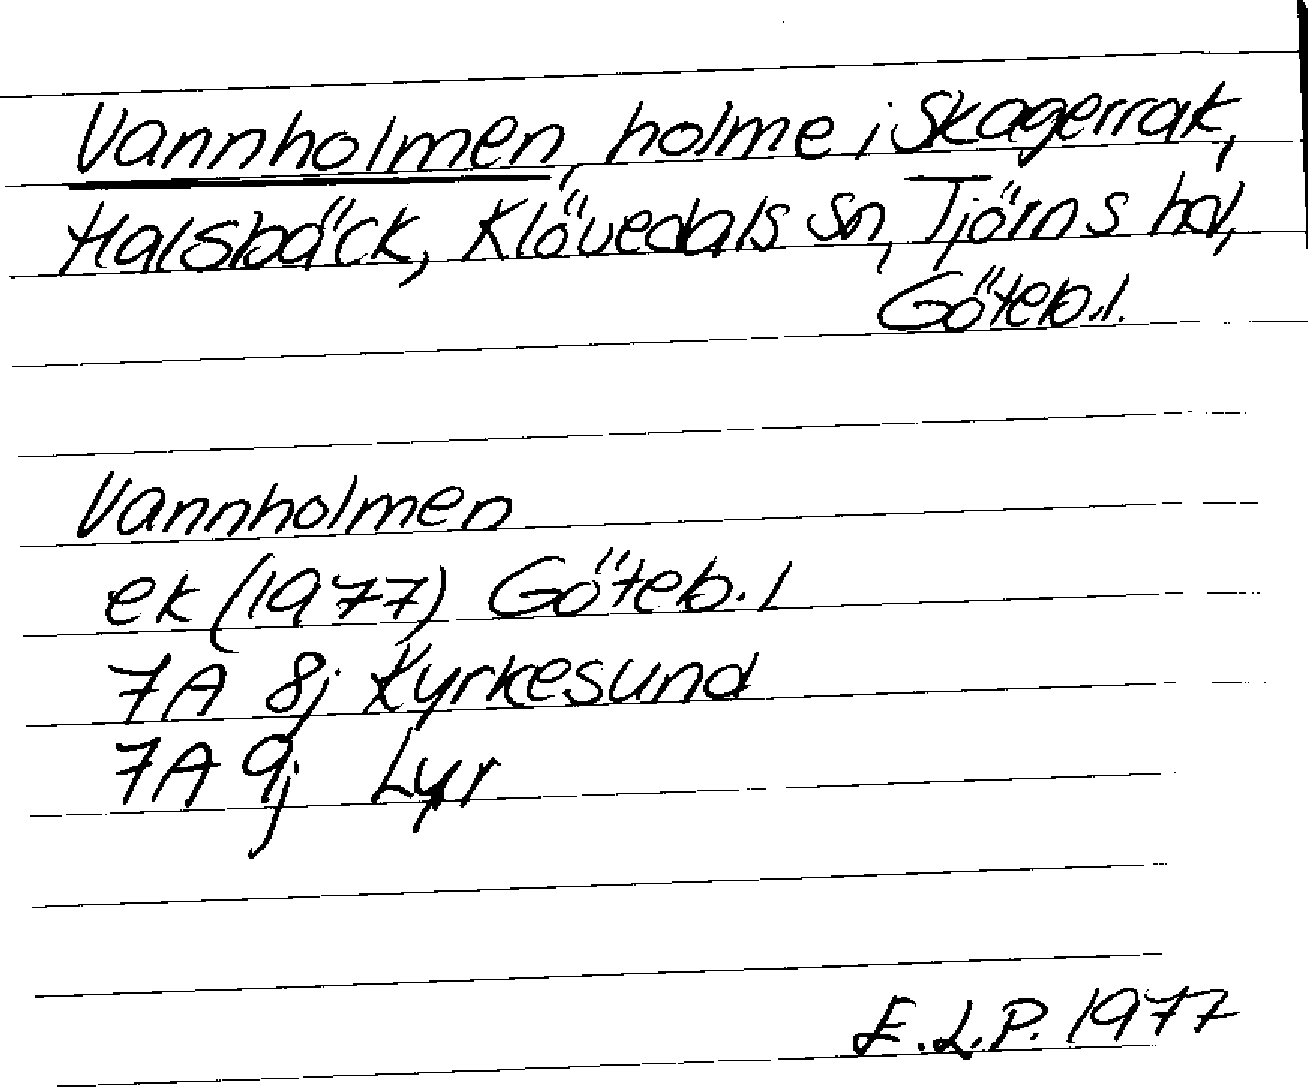 Vannholmen, holme i Skagerrak,
Halsbäck, Klövedals sn, Tjörns hd,
Göteb.l.
Vannholmen
ek (1977) Göteb.l
7A 8j Kyrkesund
7A 9j Lyr
E.L.P. 1977